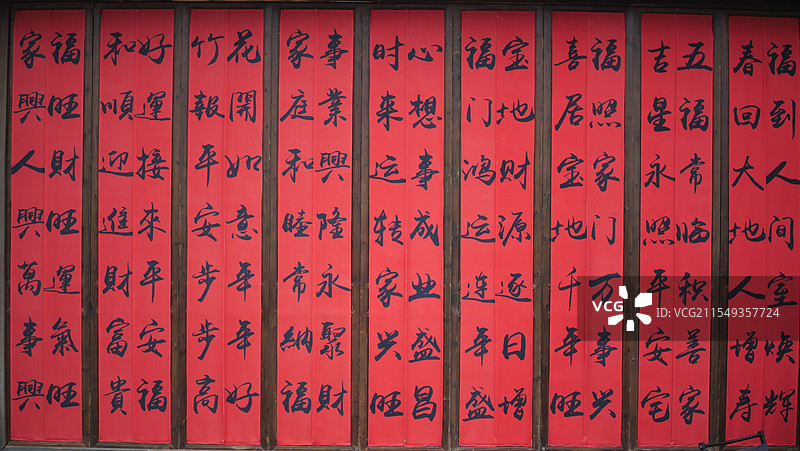 福到人间室焕辉
春回大地人增寿
五福常临积善家
吉星永照平安宅
福照家门万事兴
喜居宝地千年旺
宝地财源逐日增
福门鸿运连年盛
心想事成业盛昌
时来运转家兴旺
事業興隆永聚財
家庭和睦常納福
花開如意年年好
竹報平安步步高
好運接來平安福
和順迎進財富貴
福旺財旺運氣旺
家興人興萬事興
VCG
视觉中国
ID: VCG211549357724